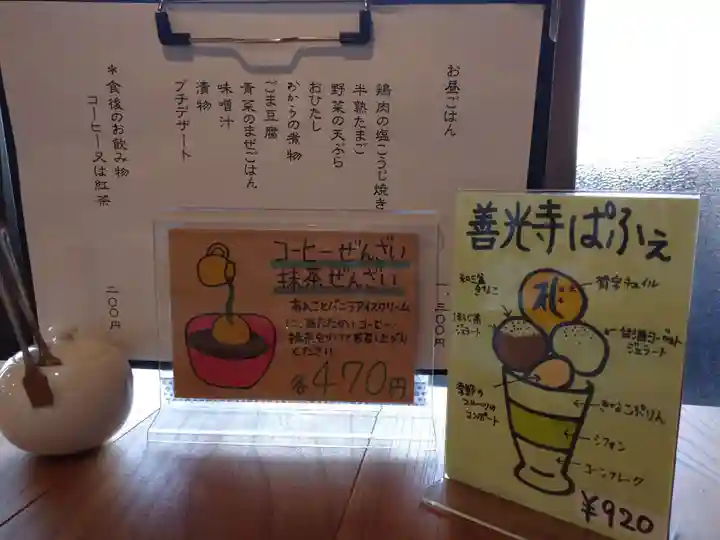 お昼ごはん
鶏肉の塩こうじ焼き
半熟たまご
野菜の天ぷら
おひたし
おからの煮物
ごま豆腐
青菜のまぜごはん
味噌汁
漬物
プチデザート
一、三〇〇円
＊食後のお飲み物
コーヒー又は紅茶
二〇〇円
コーヒーぜんざい
抹茶ぜんざい
あんことバニラアイスクリーム
に、あたたかいコーヒー・
抹茶をかけてお召し上がり
ください
各470円
善光寺ぱふぇ
和三盆
きなこ
ほうじ茶
ジェラート
甘酒ヨーグルト
ジェラート
季節の
フルーツの
コンポート
きなこぷりん
シフォン
コーンフレーク
¥920